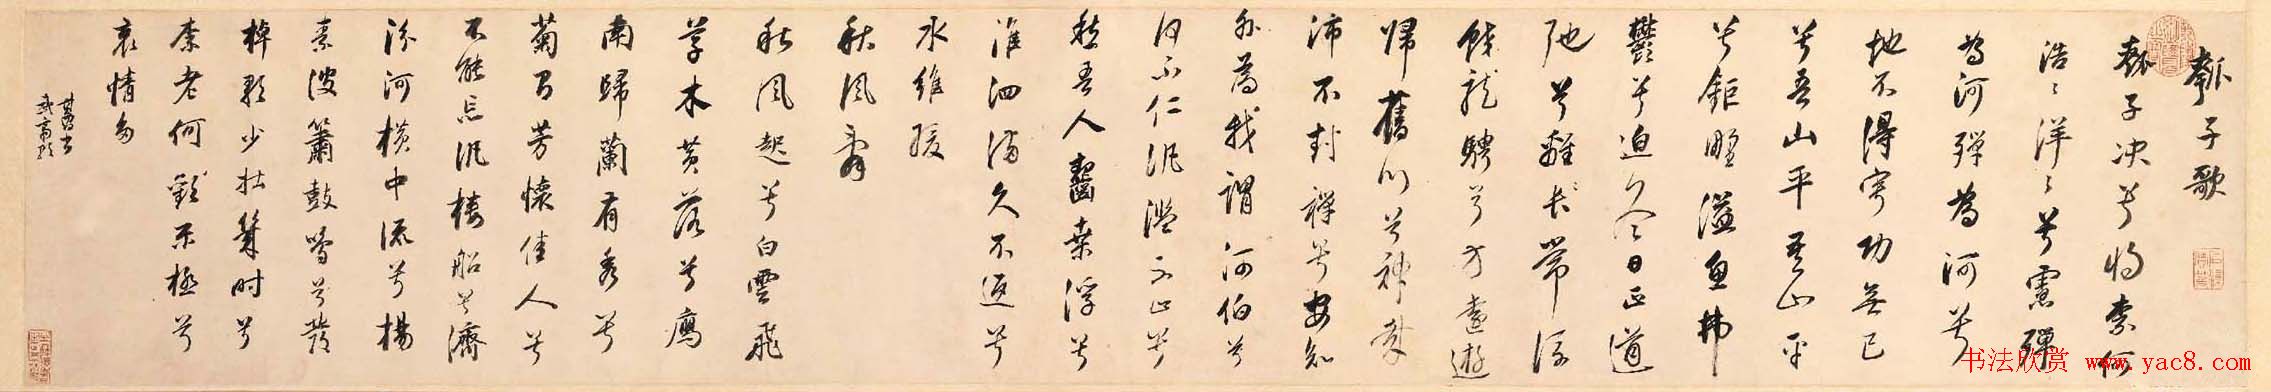 瓠子歌
瓠子决兮将奈何
浩浩洋洋兮慮殫
為河殫為河兮
地不得寧功無已
兮吾山平吾山平
兮鉅野溢魚弗
鬱兮迫冬日正道
弛兮離長常流
蛟龍騁兮方遠遊
歸舊川兮神哉
沛不封禪兮安知
外為我謂河伯兮
何不仁泛濫不止兮
愁吾人齧桑浮兮
淮泗滿久不返兮
水維緩
秋風辭
秋風起兮白雲飛
草木黄落兮鴈
南歸蘭有秀兮
菊有芳懷佳人兮
不能忘泛樓船兮濟
汾河横中流兮揚
素波簫鼓鳴兮發
棹歌少壮幾时兮
奈老何歡樂極兮
哀情多
其昌書
武帝歌
书法欣赏 www.yac8.com